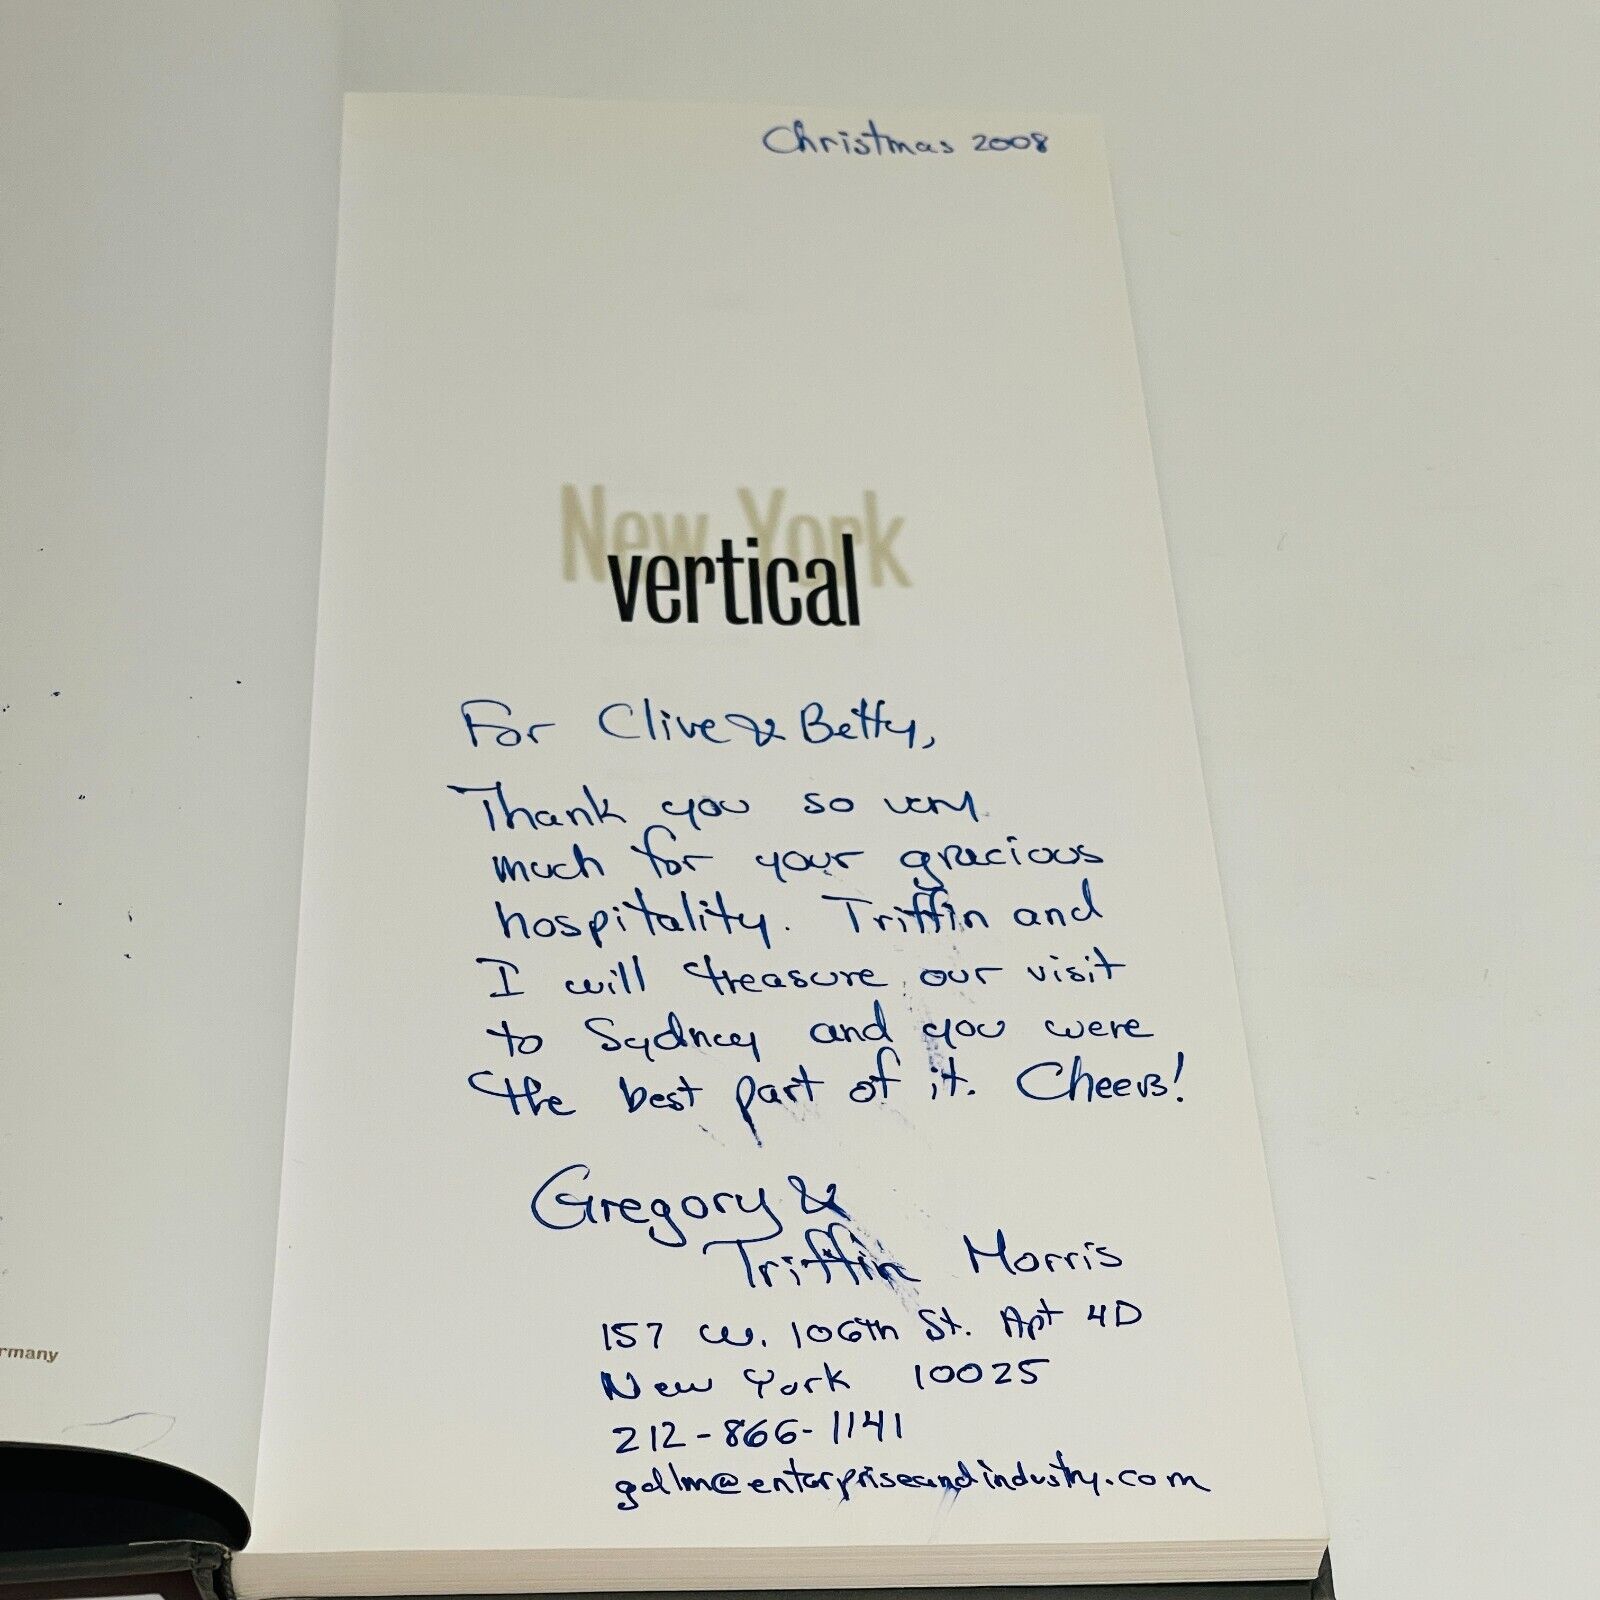 Christmas 2008
New York
vertical
For Clive & Betty,
Thank you so very
much for your gracious
hospitality. Triffin and
I will treasure our visit
to Sydney and you were
the best part of it. Cheers!
Gregory &
Triffin Morris
157 W. 106th St. Apt 4D
New York 10025
212-866-1141
gdlm@enterpriseandindustry.com
rmany